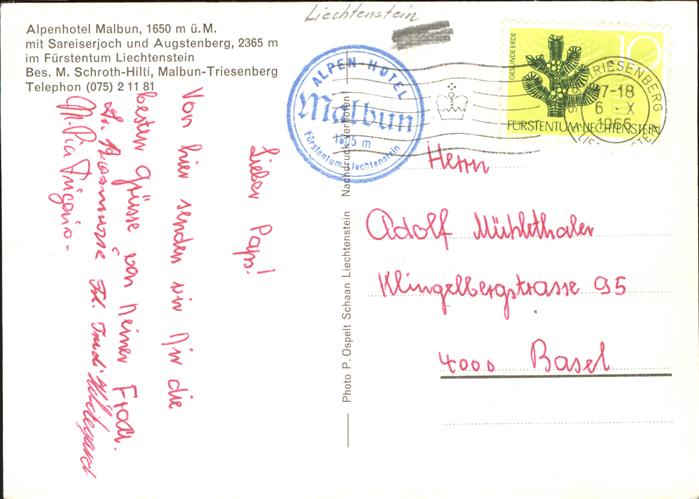 Liechtenstein
Alpenhotel Malbun, 1650 m ü.M.
mit Sareiserjoch und Augstenberg, 2365 m
im Fürstentum Liechtenstein
Bes. M. Schroth-Hilti, Malbun-Triesenberg
Telephon (075) 2 11 81
Lieber Paps!
Von hier senden wir Dir die
besten Grüsse von Deiner Frau.
Trudi Hildegard
M. Pia Frigerio-
ALPEN-HOTEL
Malbun
1605 m
Fürstentum Liechtenstein
Photo P. Ospelt Schaan Liechtenstein Nachdruck verboten
GESUNDE ERDE
10
FÜRSTENTUM LIECHTENSTEIN
TRIESENBERG
7-18
6. X
1966
LIECHTENSTEIN
Herrn
Adolf Mühlethaler
Klingelbergstrasse 95
4000 Basel